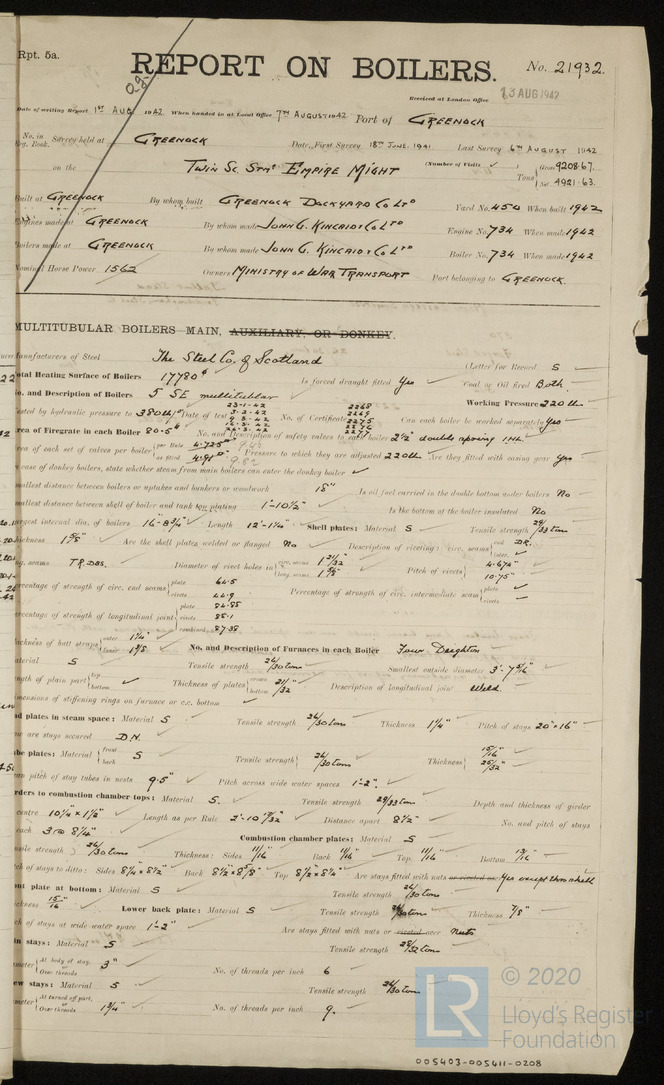 Rpt. 5a.
REPORT ON BOILERS. No. 21932.
Received at London Office 13 AUG 1942
Date of writing Report 1ST AUG 1942 When handed in at Local Office 7TH AUGUST 1942 Port of GREENOCK
No. in Reg. Book. Survey held at GREENOCK Date, First Survey 18TH JUNE, 1941 Last Survey 6TH AUGUST 1942
on the TWIN SC. STMR EMPIRE MIGHT (Number of Visits ✓ ) Tons Gross 9208.67. Net 4921.63.
Built at GREENOCK By whom built GREENOCK DOCKYARD Co LTD Yard No. 450 When built 1942
Engines made at GREENOCK By whom made JOHN G. KINCAID & Co LTD Engine No. 734 When made 1942
Boilers made at GREENOCK By whom made JOHN G. KINCAID & Co LTD Boiler No. 734 When made 1942
Nominal Horse Power 1562 Owners MINISTRY OF WAR TRANSPORT Port belonging to GREENOCK.
MULTITUBULAR BOILERS—MAIN, AUXILIARY, OR DONKEY.
Manufacturers of Steel The Steel Co. of Scotland (Letter for Record S
Total Heating Surface of Boilers 17780 Is forced draught fitted Yes Coal or Oil fired Both
No. and Description of Boilers 5 SE multitubular Working Pressure 220 lb
Tested by hydraulic pressure to 380 lb Date of test 23-1-42 3-2-42 No. of Certificate 2268 2269 2275 2276 2277 Can each boiler be worked separately Yes
Area of Firegrate in each Boiler 80.5 No. and Description of safety valves to each boiler 2½" double spring IHL
Area of each set of valves per boiler per Rule 4.725 as fitted 4.91 Pressure to which they are adjusted 220 lb Are they fitted with easing gear Yes
In case of donkey boilers, state whether steam from main boilers can enter the donkey boiler ✓
Smallest distance between boilers or uptakes and bunkers or woodwork 18" Is oil fuel carried in the double bottom under boilers No
Smallest distance between shell of boiler and tank top plating 1'-10½" Is the bottom of the boiler insulated No
Largest internal dia. of boilers 16'-8¾" Length 12'-1¼" Shell plates: Material S Tensile strength 29/33 tons
Thickness Are the shell plates welded or flanged No Description of riveting: circ. seams end D.R. inter. ✓
long. seams T.R.DBS. Diameter of rivet holes in circ. seams long. seams Pitch of rivets 4.674" 10.75"
Percentage of strength of circ. end seams plate 64.5 rivets 44.9 Percentage of strength of circ. intermediate seam plate rivets
Percentage of strength of longitudinal joint plate 84.88 rivets 85.1 combined 87.38
Thickness of butt straps outer 1¼" inner 1⅜ No. and Description of Furnaces in each Boiler Four Deighton
Material S Tensile strength 26/30 tons Smallest outside diameter 3'-7 5/16"
Length of plain part top bottom Thickness of plates crown bottom 21/32" Description of longitudinal joint Weld.
Dimensions of stiffening rings on furnace or c.c. bottom ✓
End plates in steam space: Material S Tensile strength 26/30 tons Thickness 1¼" Pitch of stays 20"×16"
How are stays secured D.N.
Tube plates: Material front back S Tensile strength 26/30 tons Thickness 15/16" 25/32"
Mean pitch of stay tubes in nests 9.5" Pitch across wide water spaces 1'-2".
Girders to combustion chamber tops: Material S. Tensile strength 29/33 tons Depth and thickness of girder
at centre 10¼"×1½" Length as per Rule 2'-10 7/32" Distance apart 8½" No. and pitch of stays
in each 3 @ 8¼" Combustion chamber plates: Material S
Tensile strength 26/30 tons Thickness: Sides 11/16" Back 11/16" Top 11/16" Bottom 13/16"
Pitch of stays to ditto: Sides 8¼"×8½" Back 8½"×8⅞" Top 8½"×8¼" Are stays fitted with nuts or riveted over Yes except thro shell
Front plate at bottom: Material S Tensile strength 26/30 tons
Thickness 15/16" Lower back plate: Material S Tensile strength 26/30 tons Thickness 7/8"
Pitch of stays at wide water space 1'-2" Are stays fitted with nuts or riveted over Nuts
Main stays: Material S Tensile strength 28/32 tons
Diameter At body of stay, or Over threads 3" No. of threads per inch 6
Screw stays: Material S Tensile strength 26/30 tons
Diameter At turned off part, or Over threads 1¾" No. of threads per inch 9.
© 2020
LR Lloyd's Register Foundation
005403-005411-0208